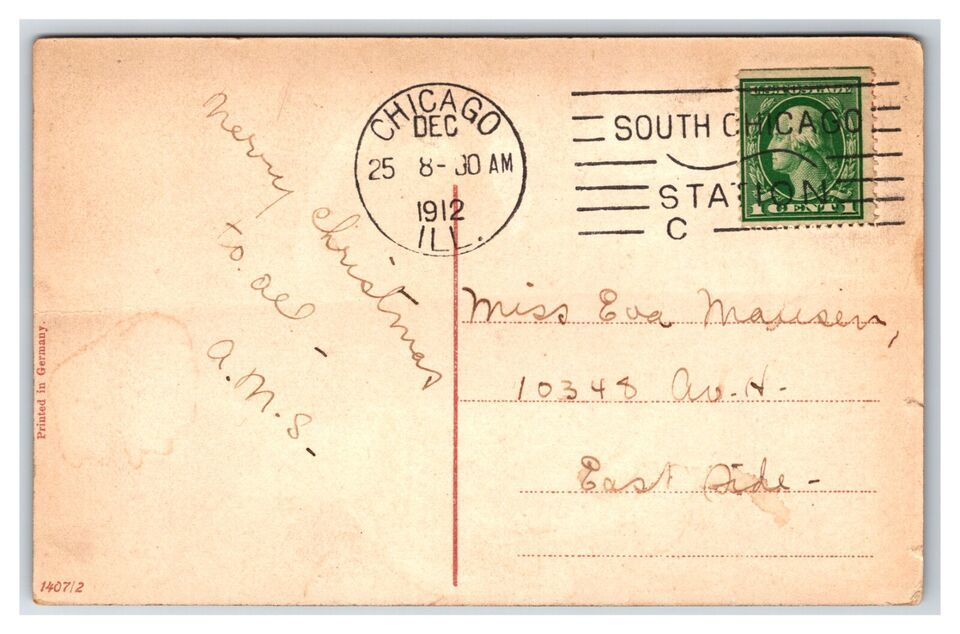 CHICAGO
DEC
25 8-30 AM
1912
ILL.
SOUTH CHICAGO
STATION
C
U.S. POSTAGE
1 CENT 1
Merry Christmas
to all -
A.M.S.
Miss Eva Mausen,
10348 Av. H-
East Side -
Printed in Germany.
1407/2